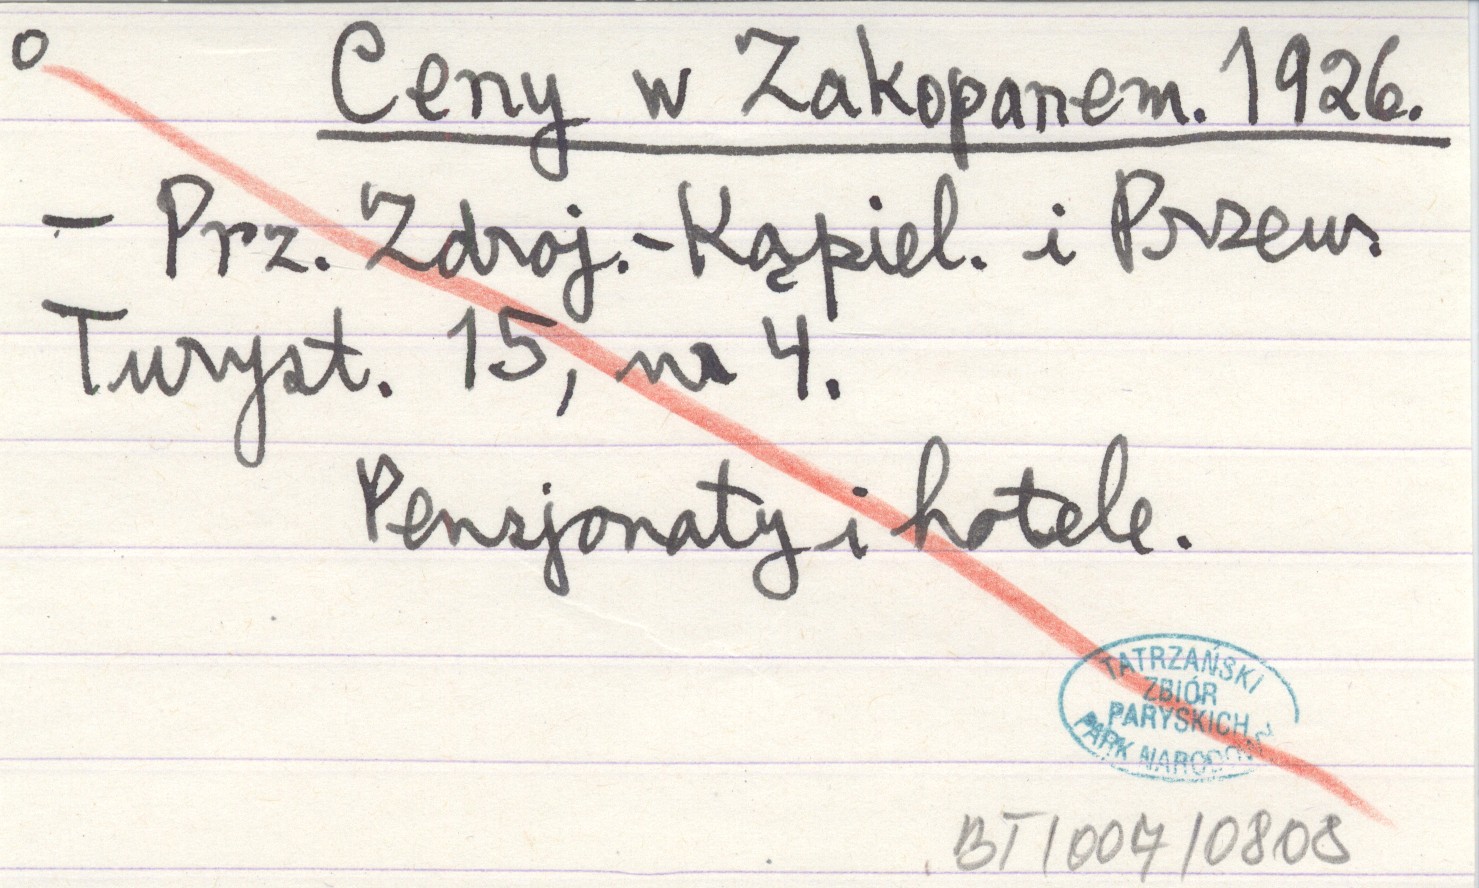 o Ceny w Zakopanem. 1926.
- Prz. Zdroj.-Kąpiel. i Przew.
Turyst. 15, nr 4.
Pensjonaty i hotele.
TATRZAŃSKI
ZBIÓR
PARYSKICH
PARK NARODOWY
BT/007/0808